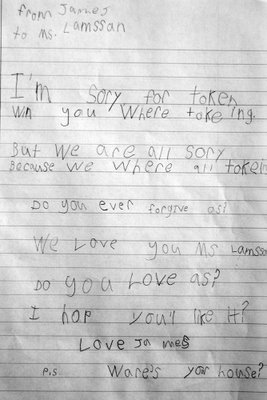 from James
to Ms. Lamssan
I'm Sory for token
Win you Where tokeing.
But We are all Sory
Because we where all token
Do you ever forgive as?
We Love you Ms Lamssan
Do you Love as?
I hop you'l like it?
Love James
P.S. Ware's your house?